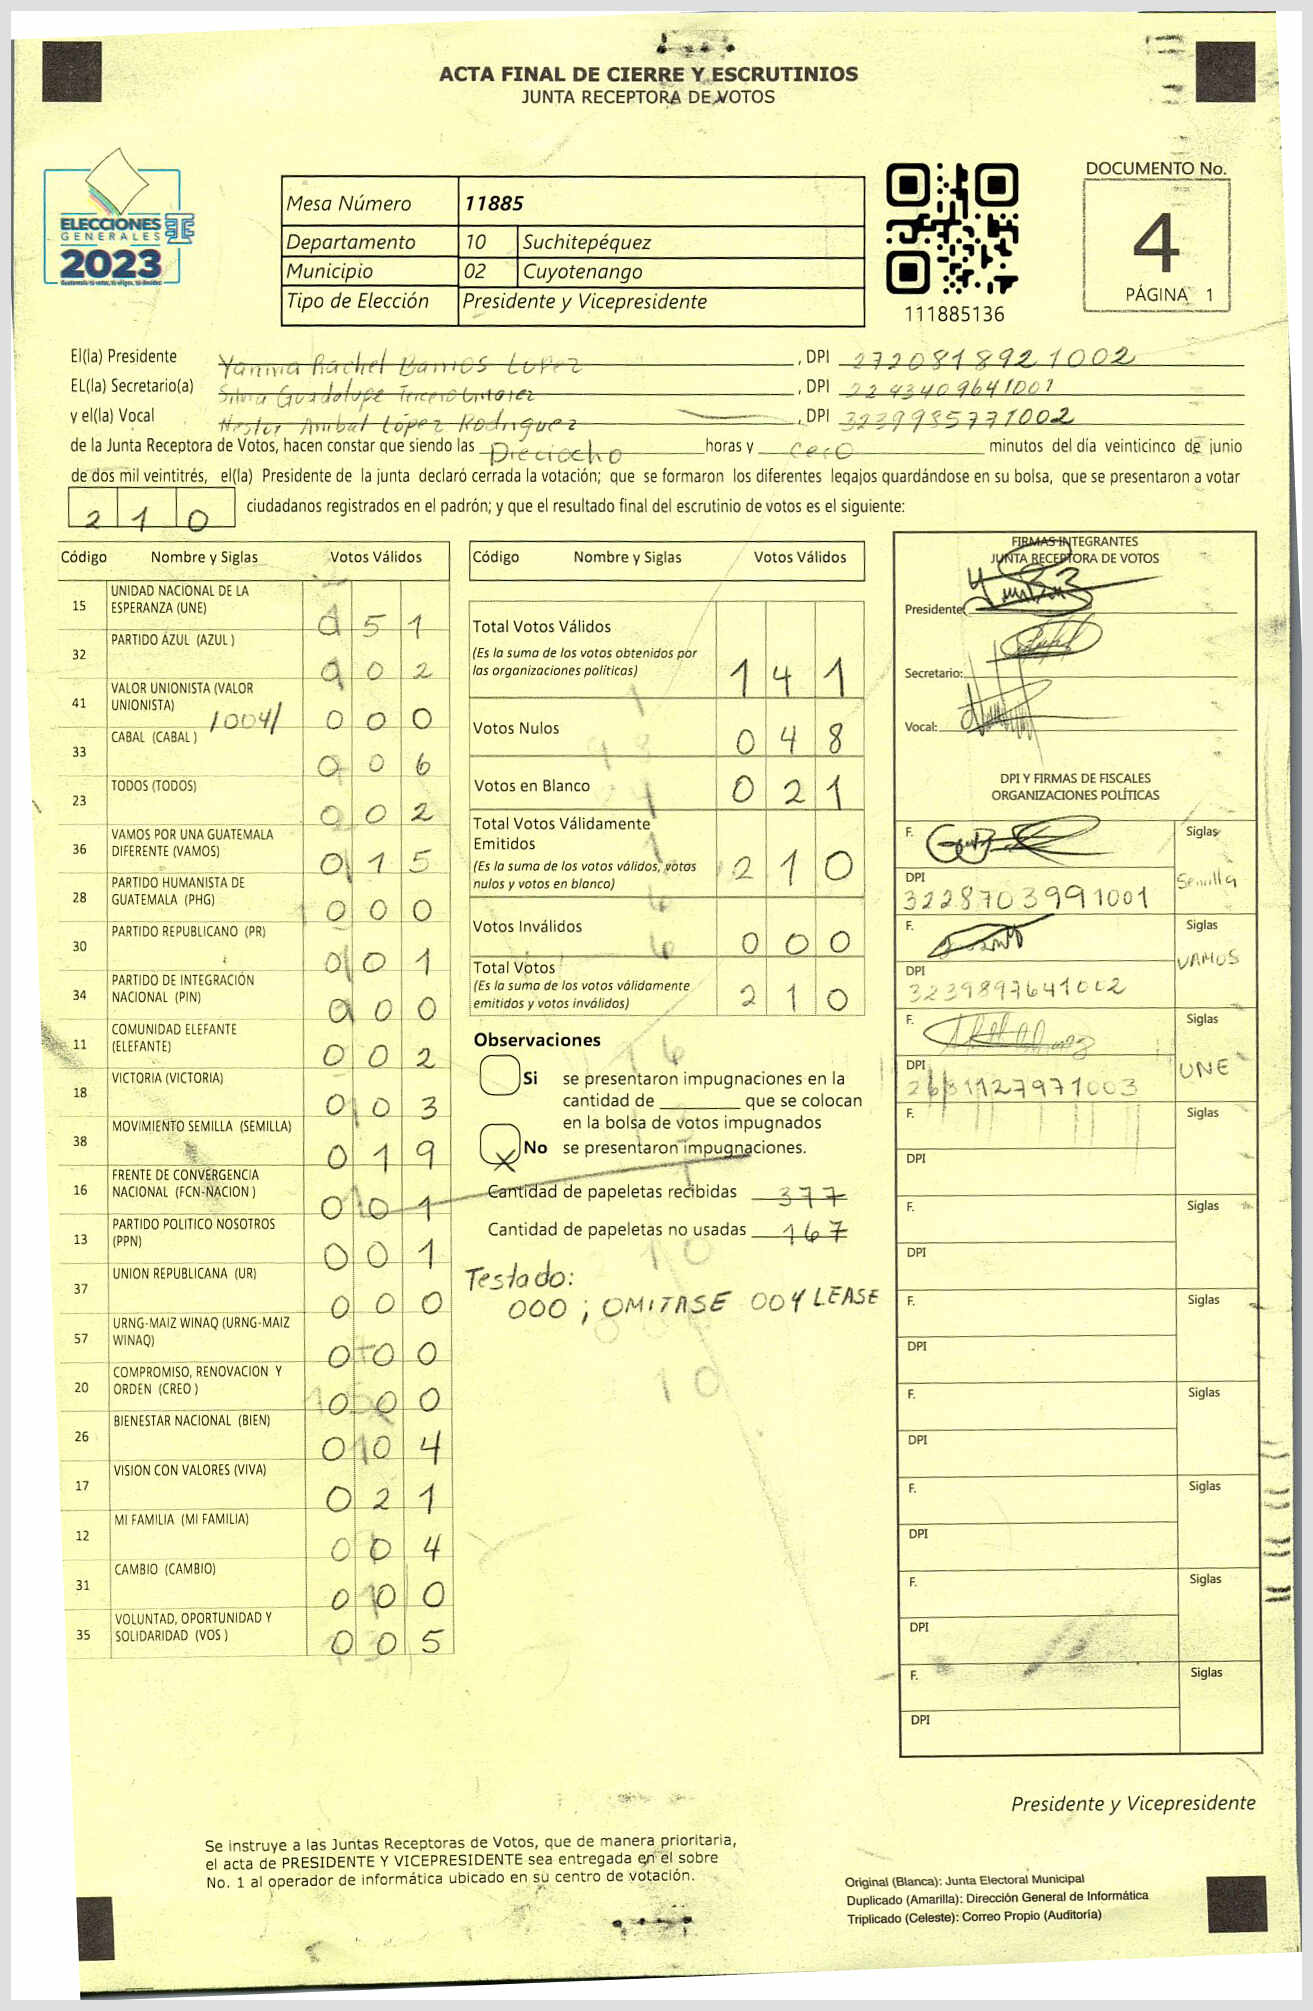 ACTA FINAL DE CIERRE Y ESCRUTINIOS
JUNTA RECEPTORA DE VOTOS
ELECCIONES
GENERALES
2023
Mesa Número 11885
Departamento 10 Suchitepéquez
Municipio 02 Cuyotenango
Tipo de Elección Presidente y Vicepresidente
111885136
DOCUMENTO No.
4
PÁGINA 1
El(la) Presidente Yanina Rachel Barrios Lopez, DPI 2720818921002
EL(la) Secretario(a) Silvia Guadalupe Tercero, DPI 2243409641001
y el(la) Vocal Nestor Anibal López Rodriguez, DPI 3239985771002
de la Junta Receptora de Votos, hacen constar que siendo las Dieciocho horas y cero minutos del día veinticinco de junio
de dos mil veintitrés, el(la) Presidente de la junta declaró cerrada la votación; que se formaron los diferentes legajos guardándose en su bolsa, que se presentaron a votar
210 ciudadanos registrados en el padrón; y que el resultado final del escrutinio de votos es el siguiente:
Código Nombre y Siglas Votos Válidos
15 UNIDAD NACIONAL DE LA
ESPERANZA (UNE) 051
32 PARTIDO AZUL (AZUL ) 002
41 VALOR UNIONISTA (VALOR
UNIONISTA) 1004/ 000
33 CABAL (CABAL ) 006
23 TODOS (TODOS) 002
36 VAMOS POR UNA GUATEMALA
DIFERENTE (VAMOS) 015
28 PARTIDO HUMANISTA DE
GUATEMALA (PHG) 000
30 PARTIDO REPUBLICANO (PR) 001
34 PARTIDO DE INTEGRACIÓN
NACIONAL (PIN) 000
11 COMUNIDAD ELEFANTE
(ELEFANTE) 002
18 VICTORIA (VICTORIA) 003
38 MOVIMIENTO SEMILLA (SEMILLA) 019
16 FRENTE DE CONVERGENCIA
NACIONAL (FCN-NACION ) 001
13 PARTIDO POLITICO NOSOTROS
(PPN) 001
37 UNION REPUBLICANA (UR) 000
57 URNG-MAIZ WINAQ (URNG-MAIZ
WINAQ) 000
20 COMPROMISO, RENOVACION Y
ORDEN (CREO ) 000
26 BIENESTAR NACIONAL (BIEN) 004
17 VISION CON VALORES (VIVA) 021
12 MI FAMILIA (MI FAMILIA) 004
31 CAMBIO (CAMBIO) 000
35 VOLUNTAD, OPORTUNIDAD Y
SOLIDARIDAD (VOS ) 005
Código Nombre y Siglas Votos Válidos
Total Votos Válidos
(Es la suma de los votos obtenidos por
las organizaciones políticas) 141
Votos Nulos 048
Votos en Blanco 021
Total Votos Válidamente
Emitidos
(Es la suma de los votos válidos, votos
nulos y votos en blanco) 210
Votos Inválidos 000
Total Votos
(Es la suma de los votos válidamente
emitidos y votos inválidos) 210
Observaciones
Si se presentaron impugnaciones en la
cantidad de ________ que se colocan
en la bolsa de votos impugnados
X No se presentaron impugnaciones.
Cantidad de papeletas recibidas 377
Cantidad de papeletas no usadas 167
Testado:
000 ; OMITASE 004 LEASE
FIRMAS INTEGRANTES
JUNTA RECEPTORA DE VOTOS
Presidente:
Secretario:
Vocal:
DPI Y FIRMAS DE FISCALES
ORGANIZACIONES POLÍTICAS
F. Siglas
DPI Semilla
3228703991001
F. Siglas
DPI VAMOS
3239897641002
F. Siglas
DPI UNE
2631127971003
F. Siglas
DPI
F. Siglas
DPI
F. Siglas
DPI
F. Siglas
DPI
F. Siglas
DPI
F. Siglas
DPI
F. Siglas
DPI
Presidente y Vicepresidente
Se instruye a las Juntas Receptoras de Votos, que de manera prioritaria,
el acta de PRESIDENTE Y VICEPRESIDENTE sea entregada en el sobre
No. 1 al operador de informática ubicado en su centro de votación.
Original (Blanca): Junta Electoral Municipal
Duplicado (Amarilla): Dirección General de Informática
Triplicado (Celeste): Correo Propio (Auditoría)